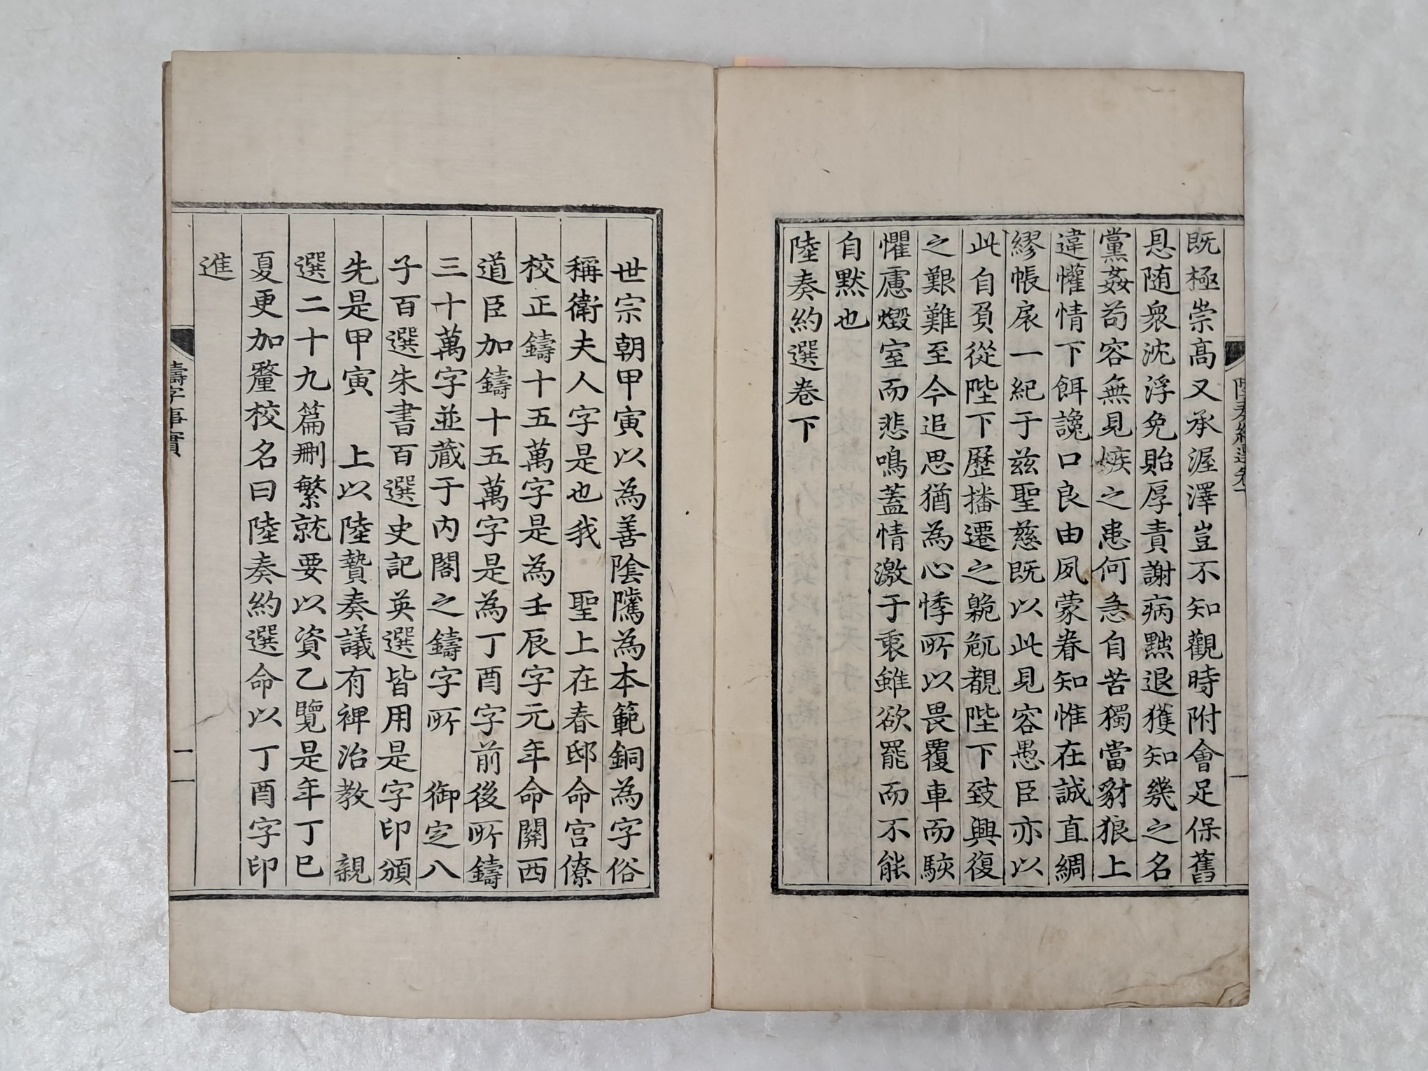 既極崇高又承渥澤豈不知觀時附會足保舊
恩随衆沈浮免貽厚責謝病黙退獲知幾之名
黨姦苟容無見嫉之患何急自苦獨當豺狼上
違懽情下餌讒口良由夙蒙眷知惟在誠直綢
繆帳扆一紀于兹聖慈既以此見容愚臣亦以
此自負從陛下歷播遷之𡰈危覩陛下致興復
之艱難至今追思猶為心悸所以畏覆車而駭
懼慮燬室而悲鳴蓋情激于衷雖欲罷而不能
自默也
陸奏約選卷下
世宗朝甲寅以為善陰騭為本範銅為字俗
稱衛夫人字是也我　聖上在春邸命宮僚
校正鑄十五萬字是為壬辰字元年命關西
道臣加鑄十五萬字是為丁酉字前後所鑄
三十萬字並藏于内閣之鑄字所　御定八
子百選朱書百選史記英選皆用是字印頒
先是甲寅　上以陸贄奏議有裨治教　親
選二十九篇刪繁就要以資乙覽是年丁巳
夏更加釐校名曰陸奏約選命以丁酉字印
進
鑄字事實
一